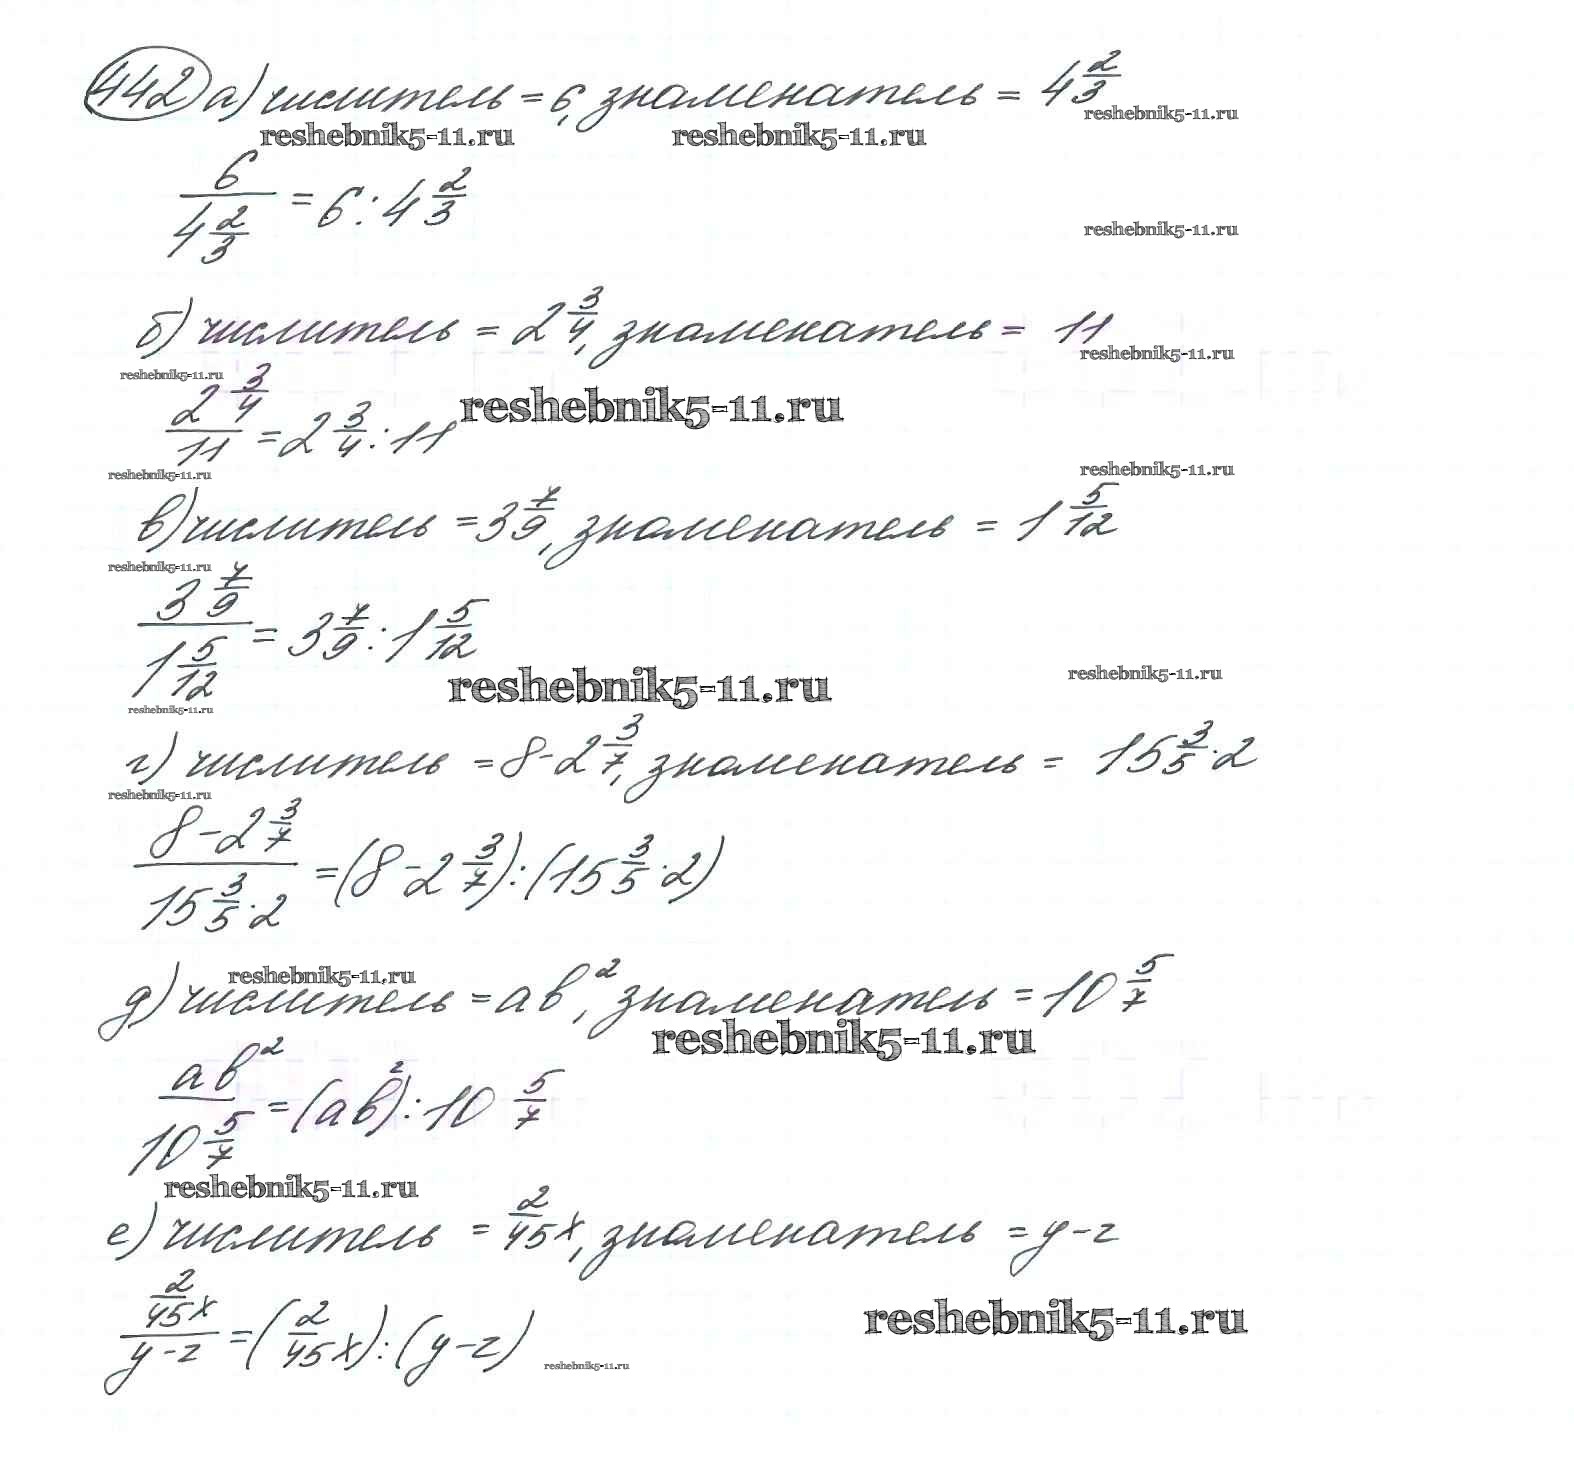 442 а) числитель = 6, знаменатель = 4 2/3
reshebnik5-11.ru reshebnik5-11.ru reshebnik5-11.ru
6/(4 2/3) = 6 : 4 2/3
reshebnik5-11.ru
б) числитель = 2 3/4, знаменатель = 11
reshebnik5-11.ru
reshebnik5-11.ru
(2 3/4)/11 = 2 3/4 : 11
reshebnik5-11.ru
reshebnik5-11.ru reshebnik5-11.ru
в) числитель = 3 7/9, знаменатель = 1 5/12
reshebnik5-11.ru
(3 7/9)/(1 5/12) = 3 7/9 : 1 5/12
reshebnik5-11.ru reshebnik5-11.ru
reshebnik5-11.ru
г) числитель = 8 - 2 3/7, знаменатель = 15 3/5 · 2
reshebnik5-11.ru
(8 - 2 3/7)/(15 3/5 · 2) = (8 - 2 3/7) : (15 3/5 · 2)
reshebnik5-11.ru
д) числитель = ab², знаменатель = 10 5/7
reshebnik5-11.ru
ab²/(10 5/7) = (ab²) : 10 5/7
reshebnik5-11.ru
е) числитель = 2/45 x, знаменатель = y - z
reshebnik5-11.ru
(2/45 x)/(y - z) = (2/45 x) : (y - z)
reshebnik5-11.ru